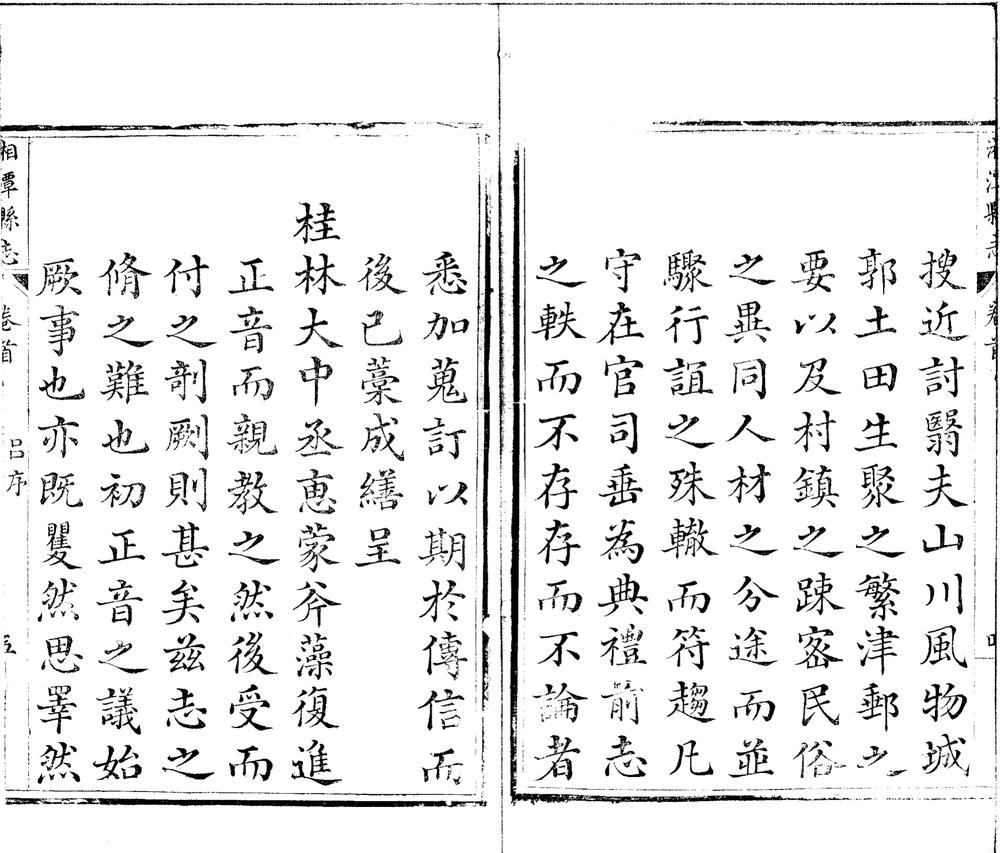 湘潭縣志 卷首
搜近討翳夫山川風物城
郭土田生聚之繁津郵之
要以及村鎮之踈宻民俗
之異同人材之分途而並
驟行誼之殊轍而符趨凡
守在官司垂為典禮前志
之軼而不存存而不論者
悉加蒐訂以期於傳信而
後已藁成繕呈
桂林大中丞恵蒙斧藻復進
正音而親教之然後受而
付之剞劂則甚矣兹志之
脩之難也初正音之議始
厥事也亦既矍然思睪然
湘潭縣志 卷首 吕序 五